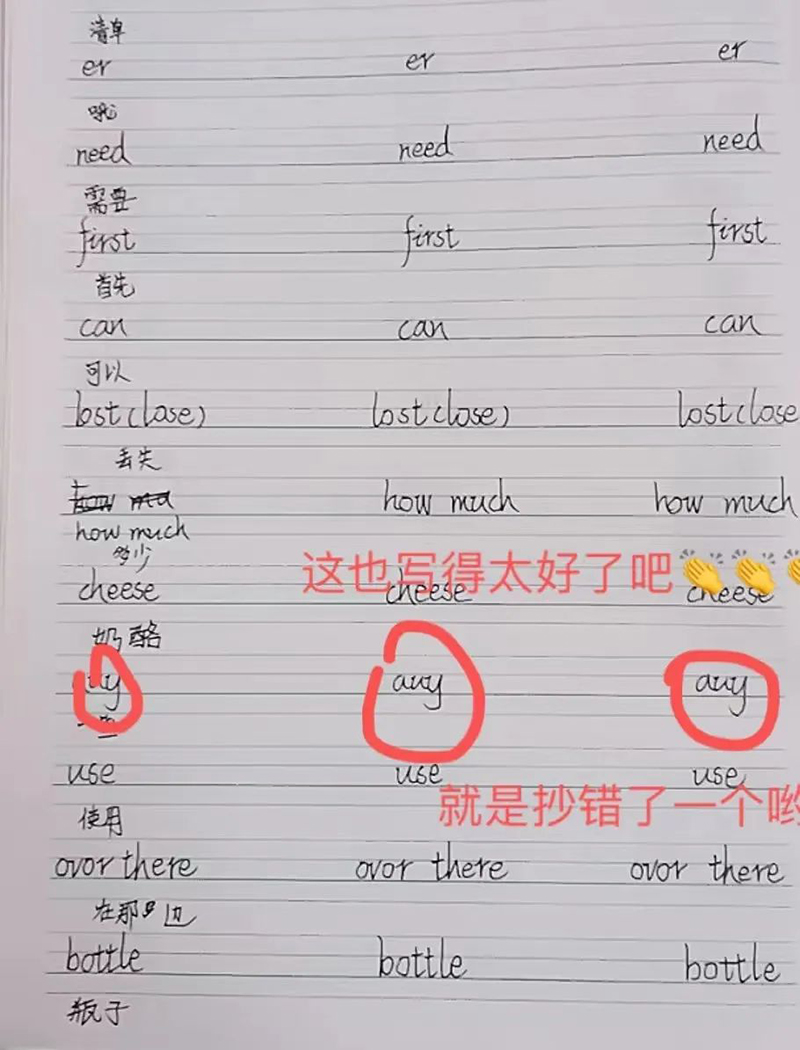 清单
er er er
哦
need need need
需要
first first first
首先
can can can
可以
lost(lose) lost(lose) lost(lose
丢失
how much how much
how much
多少
这也写得太好了吧👏👏👏
cheese cheese cheese
奶酪
auy auy
一些
use use use
就是抄错了一个哟
使用
ovor there ovor there ovor there
在那边
bottle bottle bottle
瓶子